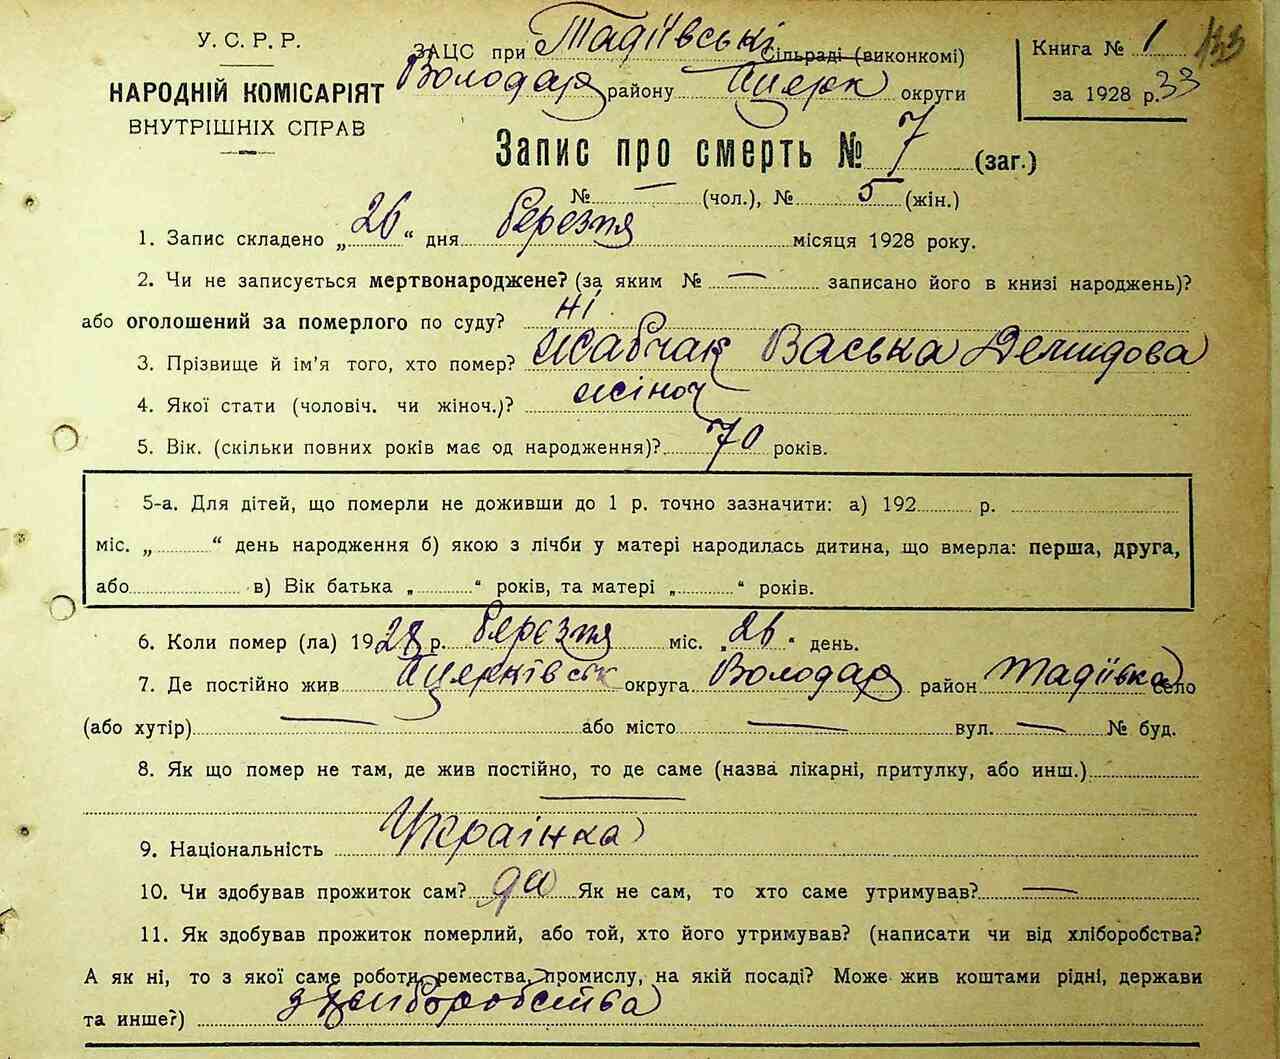 У. С. Р. Р.
НАРОДНІЙ КОМІСАРІЯТ
ВНУТРІШНІХ СПРАВ
ЗАЦС при Тадіївські Сільраді (виконкомі)
Володар району Бцерк округи
Книга № 1
за 1928 р.
133
33
Запис про смерть № 7 (заг.)
№ — (чол.), № 5 (жін.)
1. Запис складено „ 26 “ дня березня місяця 1928 року.
2. Чи не записується мертвонароджене? (за яким № — записано його в книзі народжень)?
або оголошений за померлого по суду? ні
3. Прізвище й ім’я того, хто помер? Жабчак Васька Демидова
4. Якої стати (чоловіч. чи жіноч.)? жіноч
5. Вік. (скільки повних років має од народження)? 70 років.
5-а. Для дітей, що померли не доживши до 1 р. точно зазначити: а) 192 р.
міс. „ “ день народження б) якою з лічби у матері народилась дитина, що вмерла: перша, друга,
або в) Вік батька „ “ років, та матері „ “ років.
6. Коли помер (ла) 1928 р. березня міс. „ 26 “ день.
7. Де постійно жив Бцерківськ округа Володар район Тадіївка село
(або хутір) — або місто — вул. — № буд.
8. Як що помер не там, де жив постійно, то де саме (назва лікарні, притулку, або инш.)
—
9. Національність Українка
10. Чи здобував прожиток сам? да Як не сам, то хто саме утримував? —
11. Як здобував прожиток померлий, або той, хто його утримував? (написати чи від хліборобства?
А як ні, то з якої саме роботи, ремества, промислу, на якій посаді? Може жив коштами рідні, держави
та инше?) з хліборобства